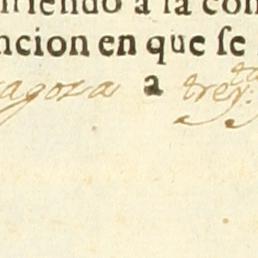 niendo a la con
ncion en que se
agoza a trey.ta